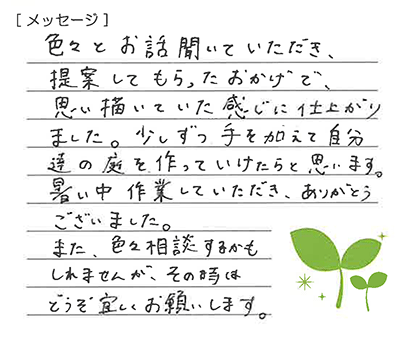 [メッセージ]
色々とお話聞いていただき、
提案してもらったおかげで、
思い描いていた感じに仕上がり
ました。少しずつ手を加えて自分
達の庭を作っていけたらと思います。
暑い中作業していただき、ありがとう
ございました。
また、色々相談するかも
しれませんが、その時は
どうぞ宜しくお願いします。